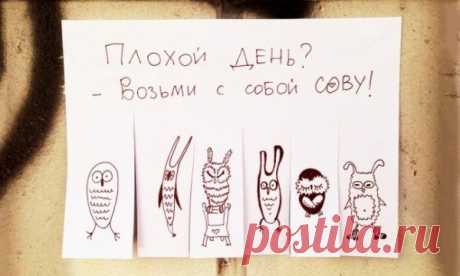 Плохой день?
- Возьми с собой сову!
postila.ru